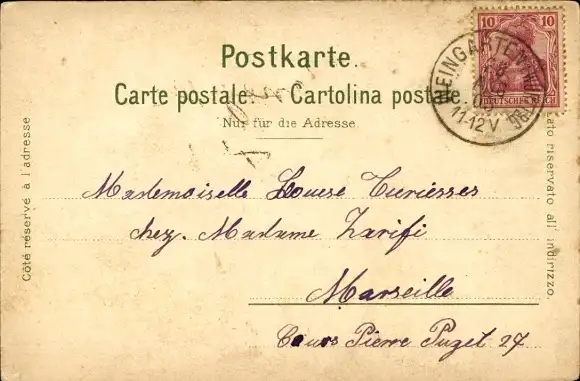 Postkarte.
Carte postale. — Cartolina postale.
Nur für die Adresse
Côté réservé à l'adresse.
Lato riservato all' indirizzo.
10 10
DEUTSCHES REICH
WEINGARTEN
11-12 V
Mademoiselle Louise
chez. Madame Zarifi
Marseille
Cours Pierre Puget 27